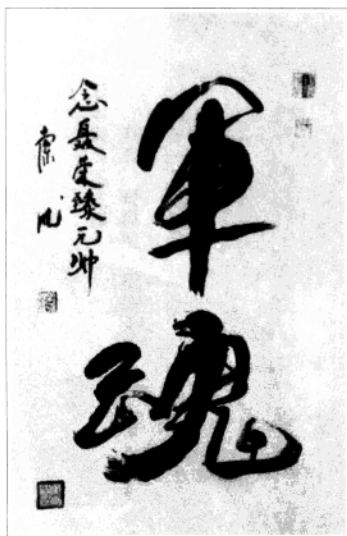 軍魂
念聂荣臻元帅